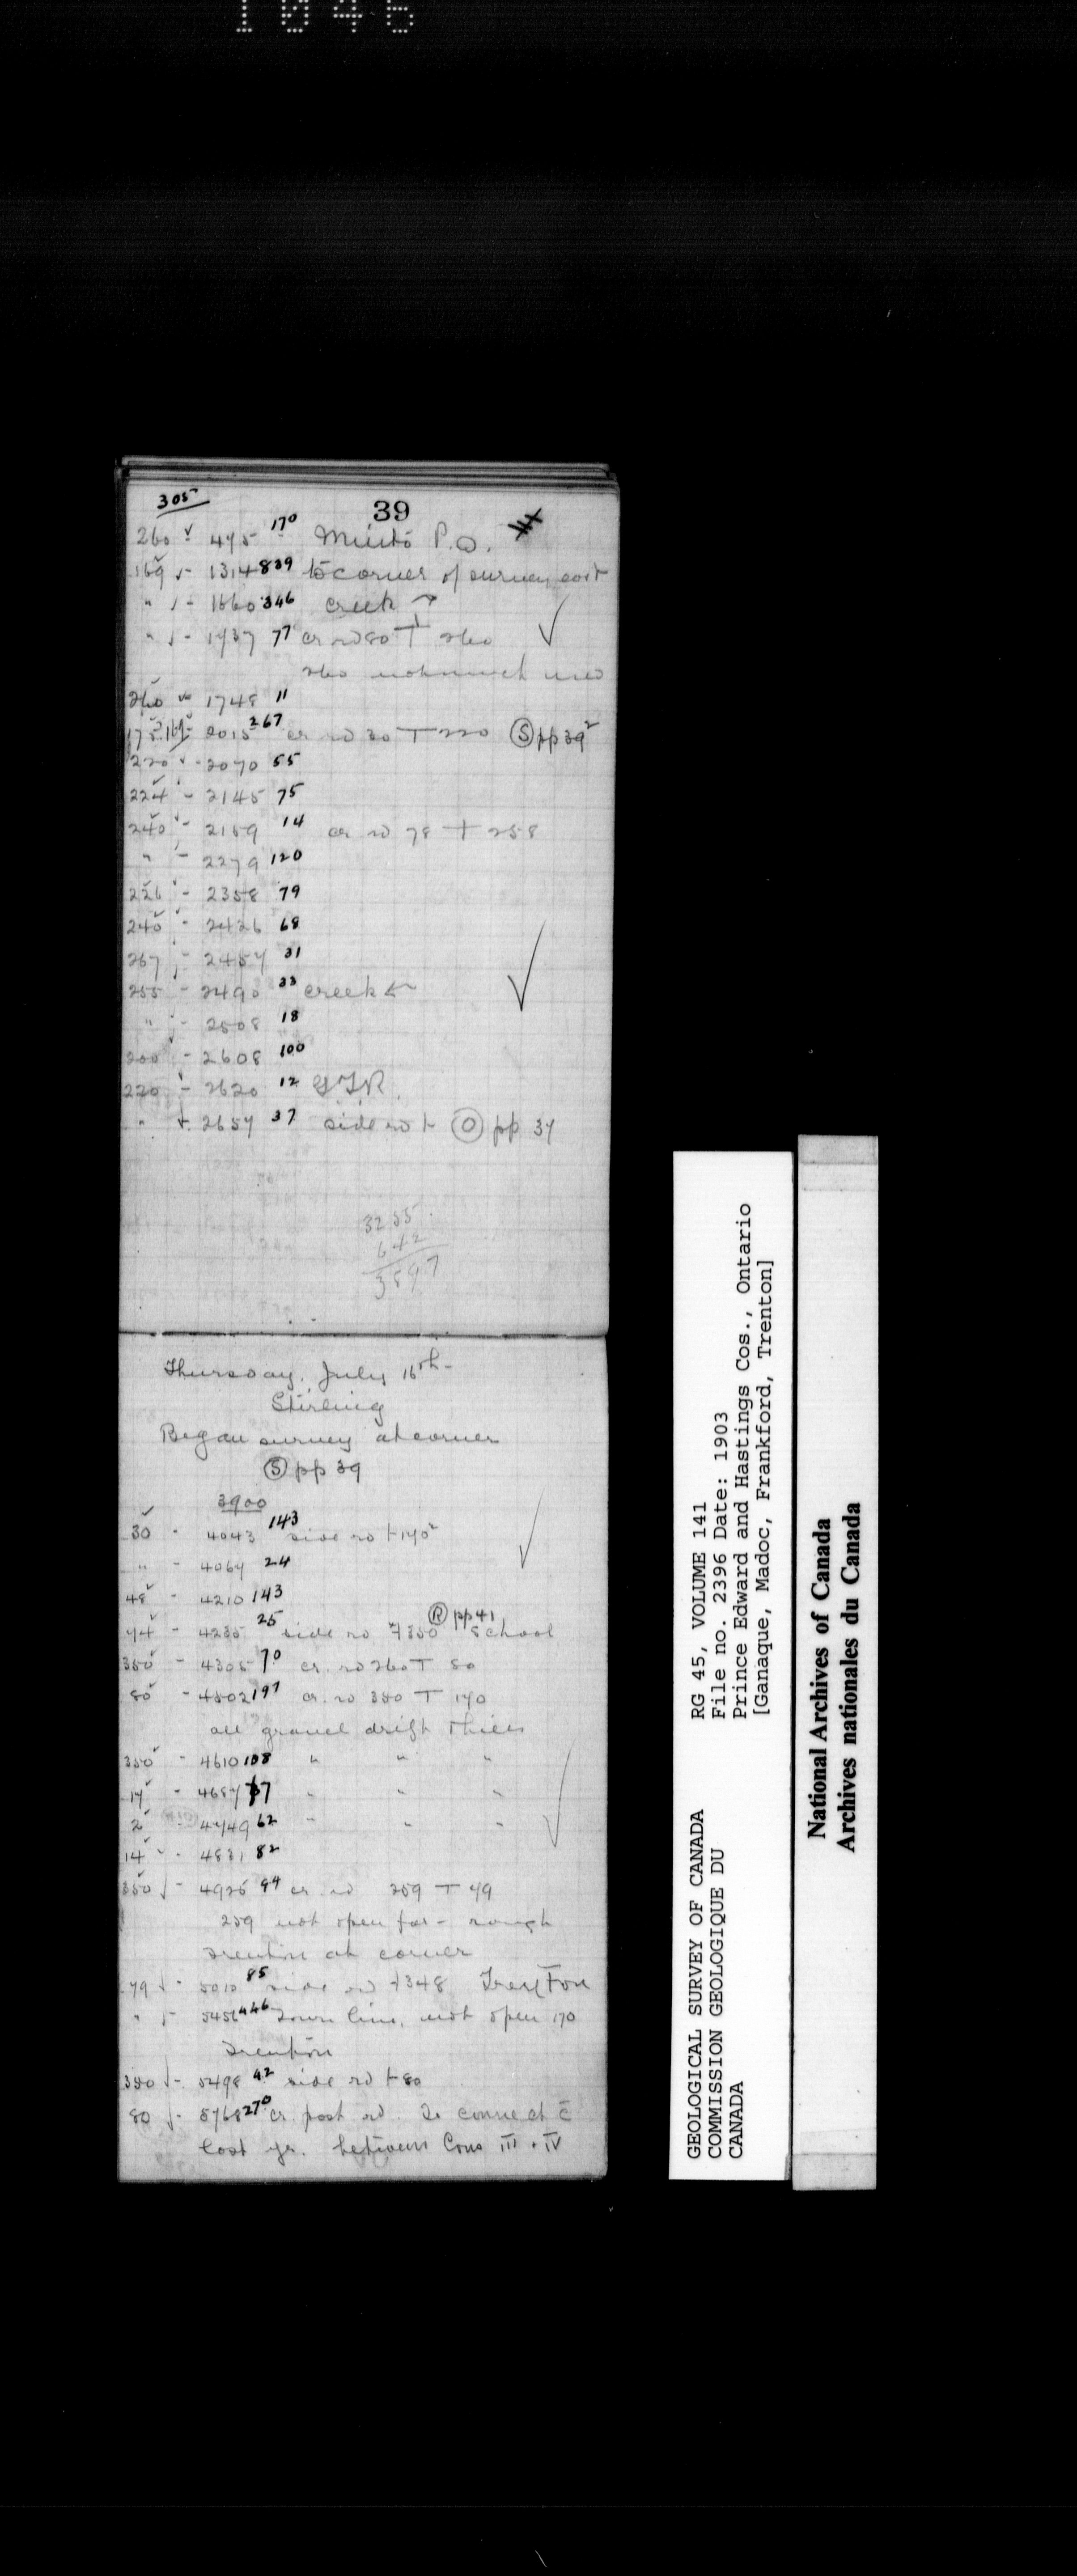 1046
39
305
260 ✓ - 475 170 Minto P.O.
169 ✓ - 1314 839 to corner of survey east
" ✓ - 1660 346 creek
" ✓ - 1737 77 cr rd 80 T 260
260 not much used
260 ✓ 1748 11
175 169 - 2015 267 cr rd 30 T 220 Ⓢ pp 39
220 - 2070 55
224 - 2145 75
240 - 2159 14 cr rd 78 + 258
" - 2279 120
226 - 2358 79
240 - 2426 68
267 - 2457 31
255 - 2490 33 creek ←
" - 2508 18
200 - 2608 100
220 - 2620 12 G.T.R.
" - 2657 37 side rd ⊢ Ⓞ pp 37
3255
642
3897
Thursday, July 16th -
Stirling
Began survey at corner
Ⓢ pp 39
3900
30 - 4043 143 side rd ⊢ 170
" - 4067 24
48 - 4210 143
Ⓡ pp 41
74 - 4235 25 side rd 350 School
350 - 4305 70 cr. rd 260 T 80
80 - 4502 197 cr. rd 350 T 170
all gravel drift hills
350 - 4610 108 " " "
17 - 4687 77 " " "
2 - 4749 62 " " "
14 - 4831 82
350 - 4925 94 cr. rd 259 T 79
259 not open far - rough
Trenton at corner
79 - 5010 85 side rd 348
" - 5456 446 Town line, not open 170
Trenton
350 - 5498 42 side rd ⊢ 80
80 - 5768 270 cr. post rd. To connect c̄
last yr. between Cons III & IV
GEOLOGICAL SURVEY OF CANADA
COMMISSION GEOLOGIQUE DU
CANADA
RG 45, VOLUME 141
File no. 2396 Date: 1903
Prince Edward and Hastings Cos., Ontario
[Ganaque, Madoc, Frankford, Trenton]
National Archives of Canada
Archives nationales du Canada